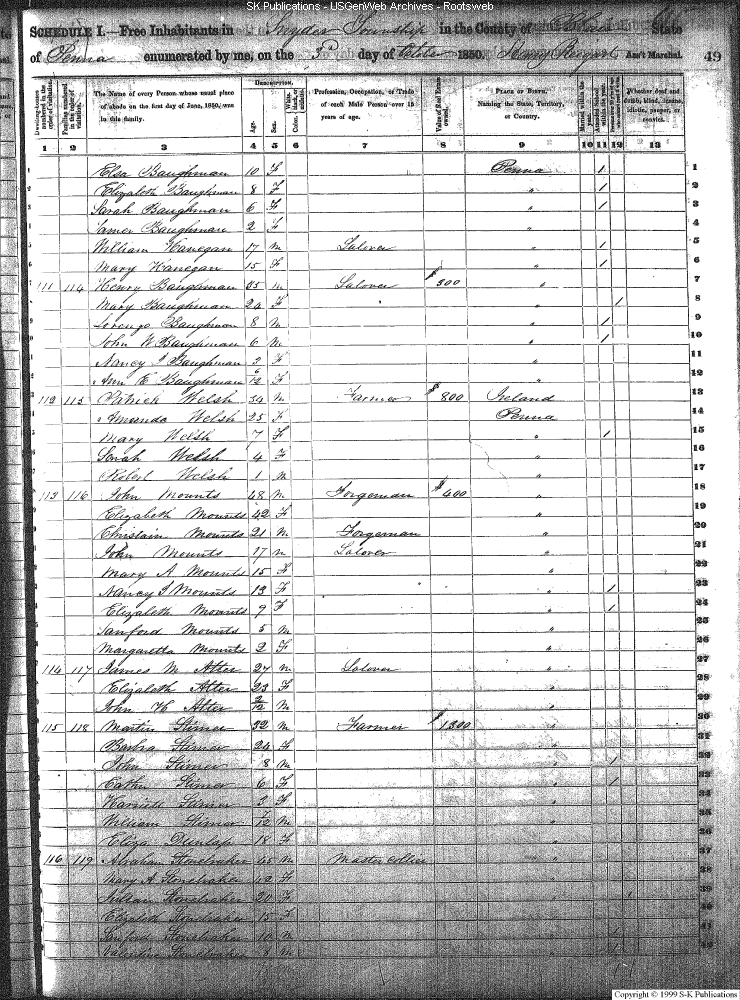 SK Publications - USGenWeb Archives - Rootsweb
SCHEDULE I.—Free Inhabitants in Snyder Township in the County of Blair State
of Penna enumerated by me, on the 3d day of October 1850. Ass't Marshal. 49
Dwelling-houses numbered in the order of visitation. Families numbered in the order of visitation. The Name of every Person whose usual place of abode on the first day of June, 1850, was in this family. Description. Age. Sex. White, black, or mulatto. Color. Profession, Occupation, or Trade of each Male Person over 15 years of age. Value of Real Estate owned. Place of Birth, Naming the State, Territory, or Country. Married within the year. Attended School within the year. Whether deaf and dumb, blind, insane, idiotic, pauper, or convict.
1 2 3 4 5 6 7 8 9 10 11 12 13
1 Elsa Baughman 10 F Penna / 1
Elizabeth Baughman 8 F " / 2
Sarah Baughman 6 F " / 3
Baughman 2 F " 4
William Hanegan 17 m Labover " / 5
Mary Hanegan 15 F " / 6
111 114 Henry Baughman 35 m Labover $ 500 " 7
Mary Baughman 24 F / 8
Lorenzo Baughman 8 m " / 9
John W Baughman 6 m " / 10
Nancy J Baughman 2 F " 11
Ann E Baughman 6/12 F " 12
112 115 Patrick Welsh 34 m Farmer $ 800 Ireland 13
Amanda Welsh 25 F Penna 14
Mary Welsh 7 F " / 15
Sarah Welsh 4 F " 16
Robert Welsh 1 m " 17
113 116 John Mounts 48 m Forgeman $ 400 " 18
Elizabeth Mounts 42 F " 19
Mounts 21 m Forgeman 20
John Mounts 17 m Labover " 21
Mary A Mounts 15 F " 22
Nancy J Mounts 13 F " / 23
Elizabeth Mounts 9 F " / 24
Sanford Mounts 5 m " 25
Margaretta Mounts 2 F " 26
114 117 James M Alter 27 m Labover " 27
Elizabeth Alter 23 F " 28
John H Alter 2/12 m " 29
115 118 Martin Stiner 32 m Farmer $ 1300 " 30
Barbra Stiner 24 F "
John Stiner 8 m " / 32
Stiner 6 F " / 33
Harriett Stiner 3 F " 34
William Stiner m " 35
Eliza Dunlap 18 F " 36
116 119 Abraham Stonebraker 45 m Master Collier " 37
Mary A Stonebraker F " 38
Stonebraker 20 F " 39
Elizabeth Stonebraker 15 F "
Sanford Stonebraker 10 m " / 41
Valentine Stonebraker 8 m " /
Copyright © 1999 S-K Publications